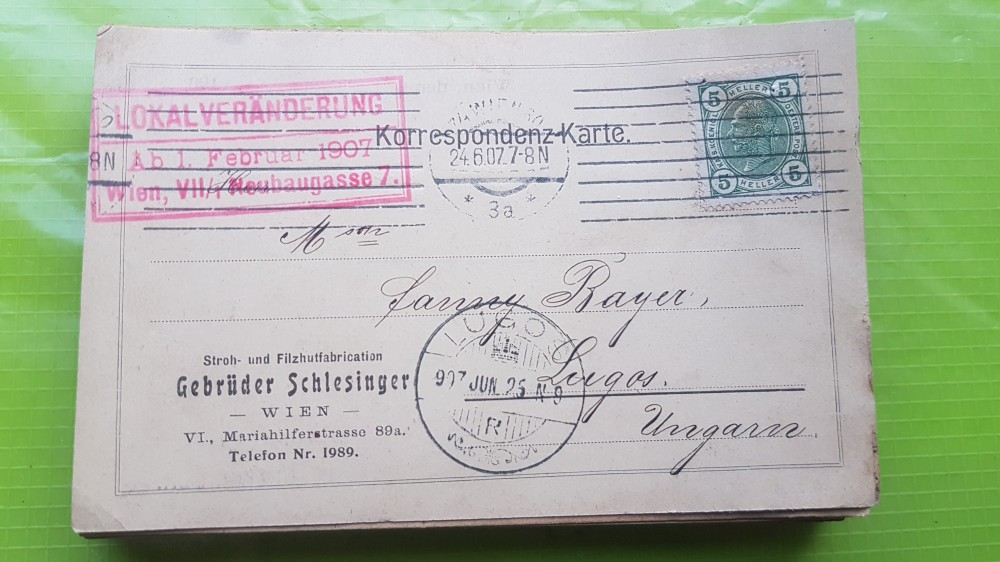 LOKALVERÄNDERUNG
Ab 1. Februar 1907
Wien, VII/, Neubaugasse 7.
8N
Korrespondenz-Karte.
24.6.07.7-8N
* 3a *
5 HELLER 5
5 HELLER 5
Mson
Fanny Bayer,
Lugos.
Ungarn.
LUGOS
907 JUN. 25 N 9
R
Stroh- und Filzhutfabrication
Gebrüder Schlesinger
— WIEN —
VI., Mariahilferstrasse 89a.
Telefon Nr. 1989.